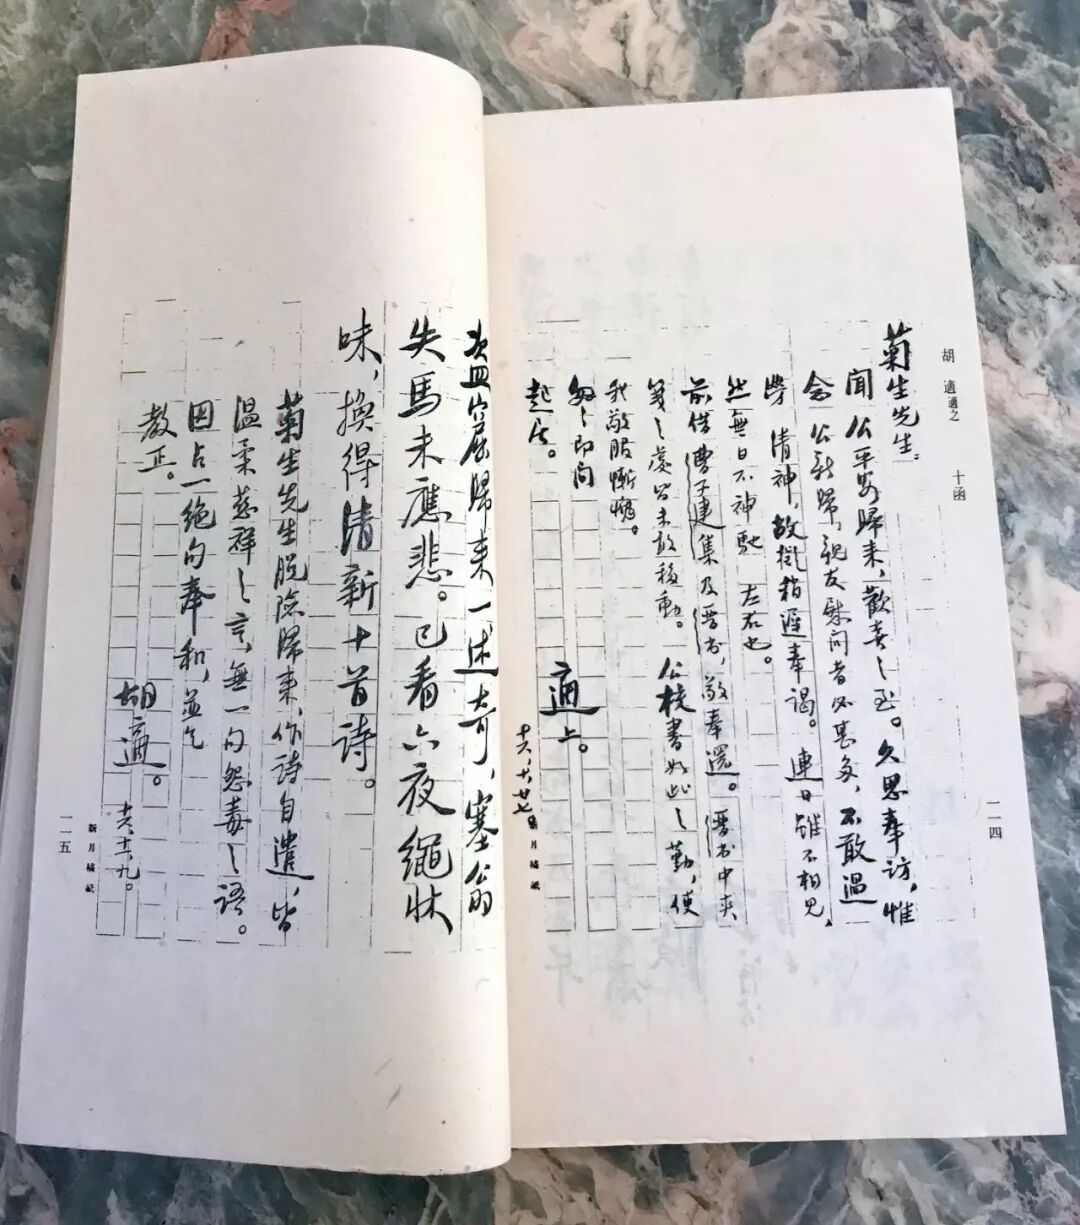 胡適適之 十函
一一四
菊生先生。
聞 公平安歸來，歡喜之至。久思奉訪，惟
念 公新歸，親友慰問者必甚多，不敢過
勞 清神，故擬稍遲奉謁。連日雖不相見，
然無日不神馳 左右也。
前借曹子建集及書，敬奉還。書中夾
箋之處皆未敢移動。 公校書如此之勤，使
我敬服慚愧。
匆匆即問
起居。
適上。
十六，十，廿七。
新月稿紙
盜窟歸來一述奇，塞翁
失馬未應悲。已看六夜繩牀
味，換得清新十首詩。
菊生先生脫險歸來，作詩自遣，皆
溫柔慈祥之言，無一句怨毒之語。
因占一絕句奉和，並乞
教正。
胡適。
十六，十一，九。
新月稿紙
一一五